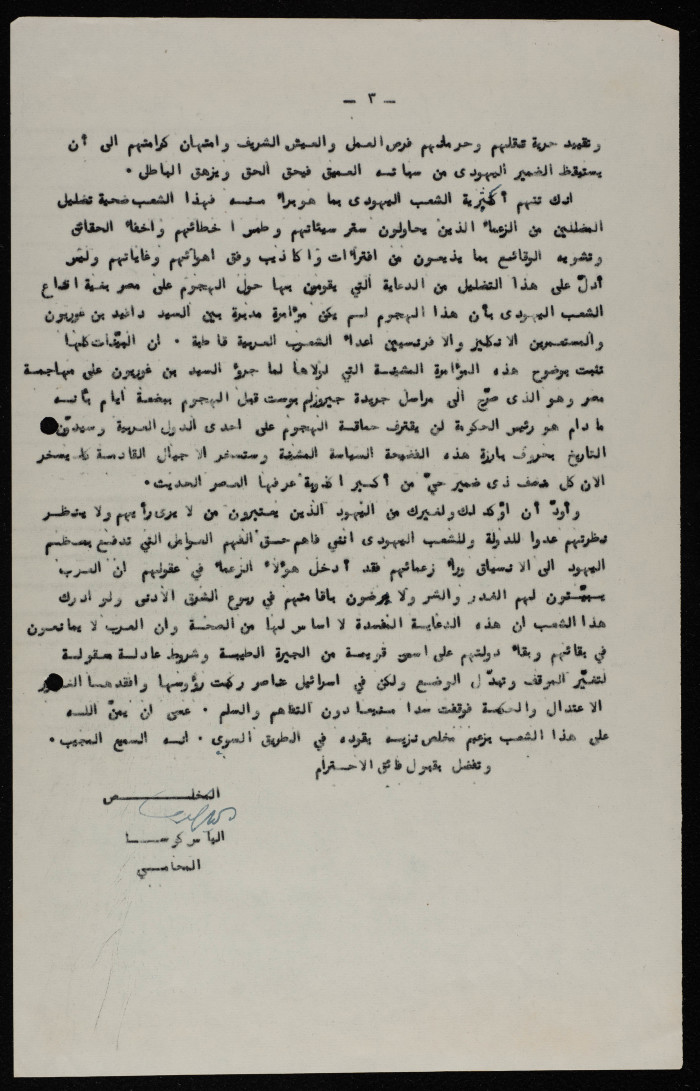 - ٣ -
وتقييد حرية تنقلهم وحرمانهم فرص العمل والعيش الشريف وامتهان كرامتهم الى أن
يستيقظ الضمير اليهودى من سباته العميق فيحق الحق ويزهق الباطل .
انك تتهم أكثرية الشعب اليهودى بما هو براء منه فهذا الشعب ضحية تضليل
المضللين من الزعماء الذين يحاولون ستر سيئاتهم وطمس اخطائهم واخفاء الحقائق
وتشويه الوقائع بما يذيعون من افتراءات واكاذيب وفق اهوائهم وغاياتهم وليس
أدلّ على هذا التضليل من الدعاية التي يقومون بها حول الهجوم على مصر بغية اقناع
الشعب اليهودى بأن هذا الهجوم لم يكن مؤامرة مدبرة بين السيد دافيد بن غوريون
والمستعمرين الانكليز والافرنسيين اعداء الشعوب العربية قاطبة . ان البيّنات كلها
تثبت بوضوح هذه المؤامرة المشينة التي لولاها لما جرؤ السيد بن غوريون على مهاجمة
مصر وهو الذى صرّح الى مراسل جريدة جيروزلم بوست قبل الهجوم ببضعة ايام بأنه
ما دام هو رئيس الحكومة لن يقترف حماقة الهجوم على احدى الدول العربية وسيدوّن
التاريخ بحروف بارزة هذه الفضيحة السياسة المشينة وستسخر الاجيال القادمة كما يسخر
الان كل منصف ذى ضمير حيّ من أكبر اكذوبة عرفها العصر الحديث .
وأودّ أن اؤكد لك ولغيرك من اليهود الذين يعتبرون من لا يرى رأيهم ولا ينظر
نظرتهم عدوا للدولة وللشعب اليهودى انني فاهم حسق الفهم العوامل التي تدفع بمعظم
اليهود الى الانسياق وراء زعمائهم فقد أدخل هؤلاء الزعماء في عقولهم ان العرب
يبيّتون لهم الغدر والشر ولا يرضون باقامتهم في ربوع الشرق الأدنى ولو ادرك
هذا الشعب ان هذه الدعاية المفسدة لا اساس لها من الصحة وان العرب لا يمانعون
في بقائهم وبقاء دولتهم على اسس قويمة من الجيرة الطيبة وشروط عادلة معقولة
لتغيّر الموقف وتبدّل الوضع ولكن في اسرائيل عناصر ركبت رؤوسها وافقدها
الاعتدال والحكمة فوقفت سدا منيعا دون التفاهم والسلم . عسى ان يمنّ اللـه
على هذا الشعب بزعيم مخلص نزيه يقوده في الطريق السوى . انه السميع المجيب .
وتفضل بقبول فائق الاحترام
المخلـــص
الياس كوسـا
المحامـي